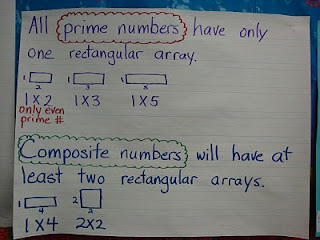 All prime numbers have only
one rectangular array.
1 2 1 3 1 5
1X2 1X3 1X5
only even
prime #
Composite numbers will have at
least two rectangular arrays.
1 4 2 2
1X4 2X2